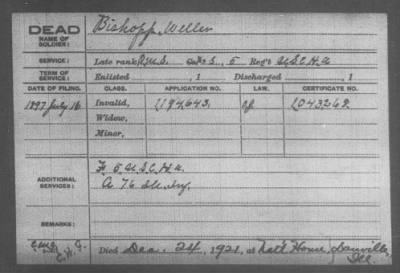 DEAD
NAME OF SOLDIER: Bishopp, Weller
SERVICE: Late rank, Q.M.S. Co. 5 Reg't U.S.C.H.A.
TERM OF SERVICE: Enlisted , 1 Discharged , 1
DATE OF FILING. CLASS. APPLICATION NO. LAW. CERTIFICATE NO.
1897 July 16 Invalid, 1194,643 1043269
Widow,
Minor,
F 5 U.S.C.H.A.
ADDITIONAL SERVICES: A 76 Ill. Inf.
REMARKS:
Died Dec. 24, 1921, at Nat'l Home, Danville,
Ill.